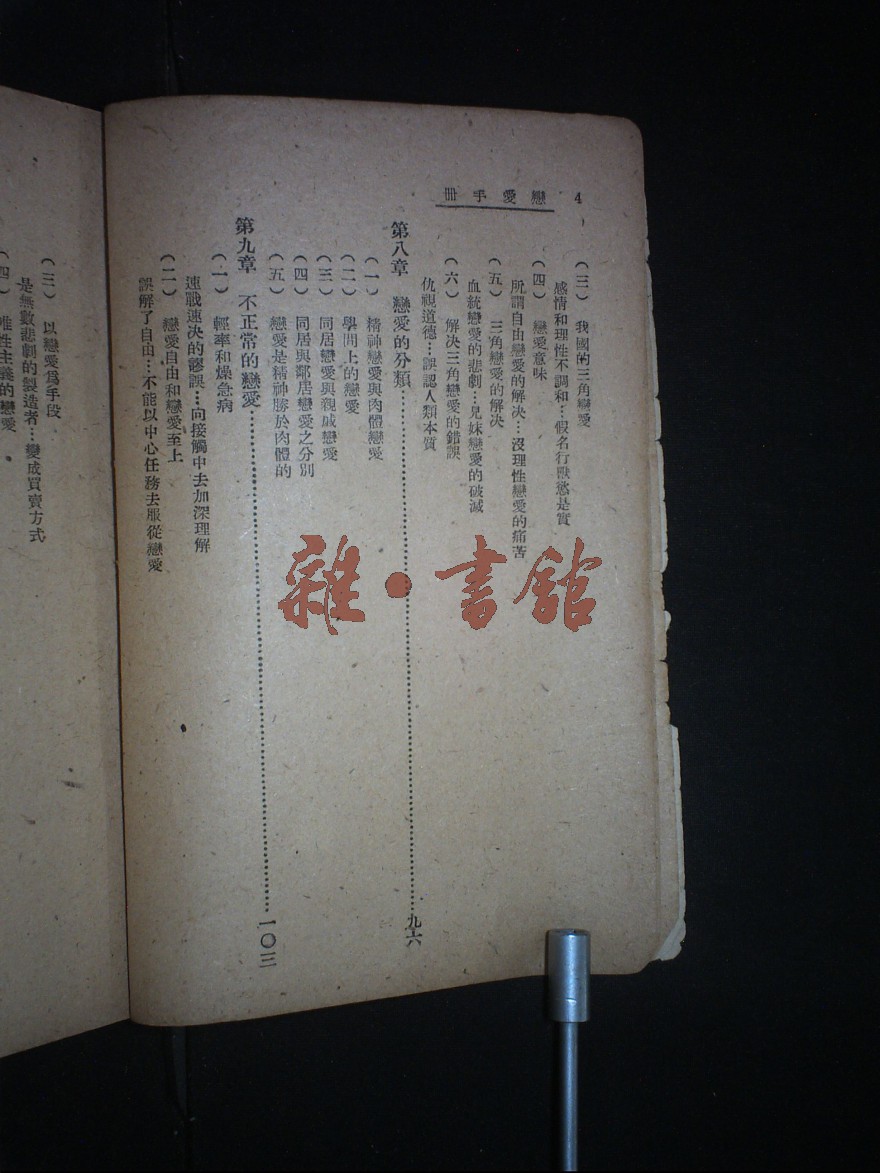 4 戀愛手冊
（三） 我國的三角戀愛
感情和理性不調和…假名行獸慾是實
（四） 戀愛意味
所謂自由戀愛的解決…沒理性戀愛的痛苦
（五） 三角戀愛的解決
血統戀愛的悲劇…兄妹戀愛的破滅
（六） 解決三角戀愛的錯誤
仇視道德…誤認人類本質
第八章 戀愛的分類……………………九六
（一） 精神戀愛與肉體戀愛
（二） 學問上的戀愛
（三） 同居戀愛與親戚戀愛
（四） 同居與鄰居戀愛之分別
（五） 戀愛是精神勝於肉體的
第九章 不正常的戀愛……………………一〇三
（一） 輕率和燥急病
速戰速决的謬誤…向接觸中去加深理解
（二） 戀愛自由和戀愛至上
誤解了自由…不能以中心任務去服從戀愛
（三） 以戀愛爲手段
是無數悲劇的製造者…變成買賣方式
（四） 唯性主義的戀愛
雜・書館